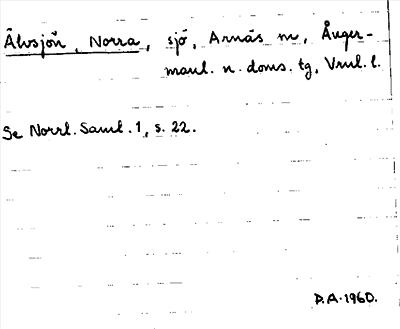 Älvsjön, Norra, sjö, Arnäs sn, Ånger-
manl. n. doms. tg, Vnl. l.
Se Norrl. Saml. 1, s. 22.
P.A. 1960.